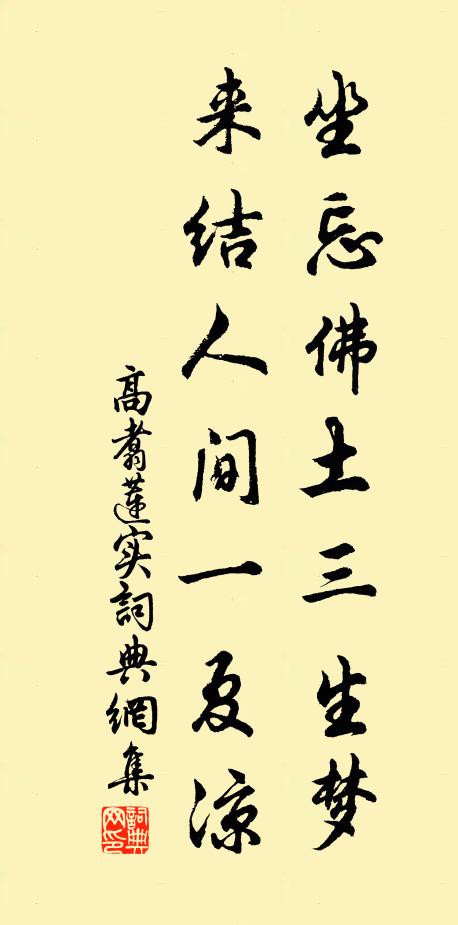 坐忘佛土三生梦
来结人间一夏凉
高翥莲实詞典網集
詞典网印